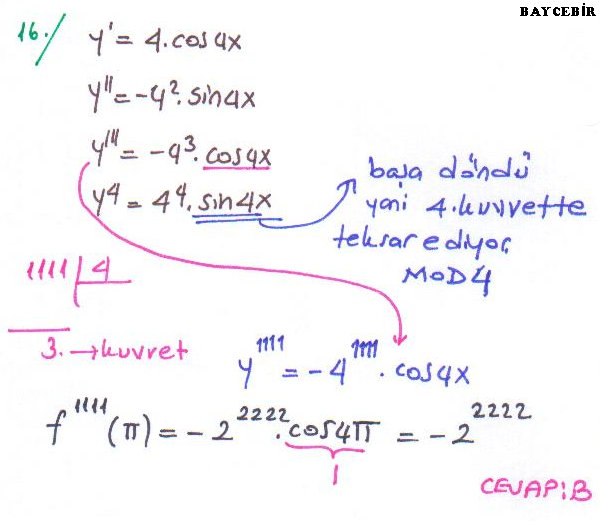 BAYCEBİR
16./ y' = 4.cos4x
y'' = -4².sin4x
y''' = -4³.cos4x
y⁴ = 4⁴.sin4x
başa döndü
yani 4.kuvvette
tekrar ediyor
MOD4
1111 | 4
3. → kuvvet
y¹¹¹¹ = -4¹¹¹¹.cos4x
f¹¹¹¹(π) = -2²²²².cos4π = -2²²²²
1
CEVAP:B